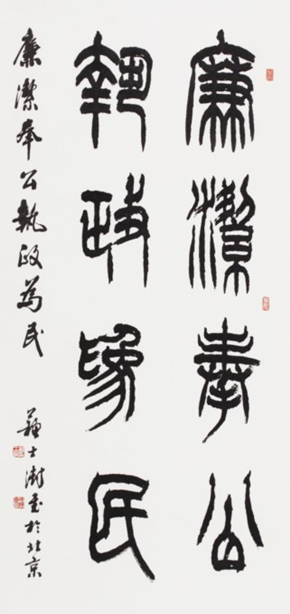 廉潔奉公
執政為民
廉潔奉公執政為民
蘇士澍書於北京